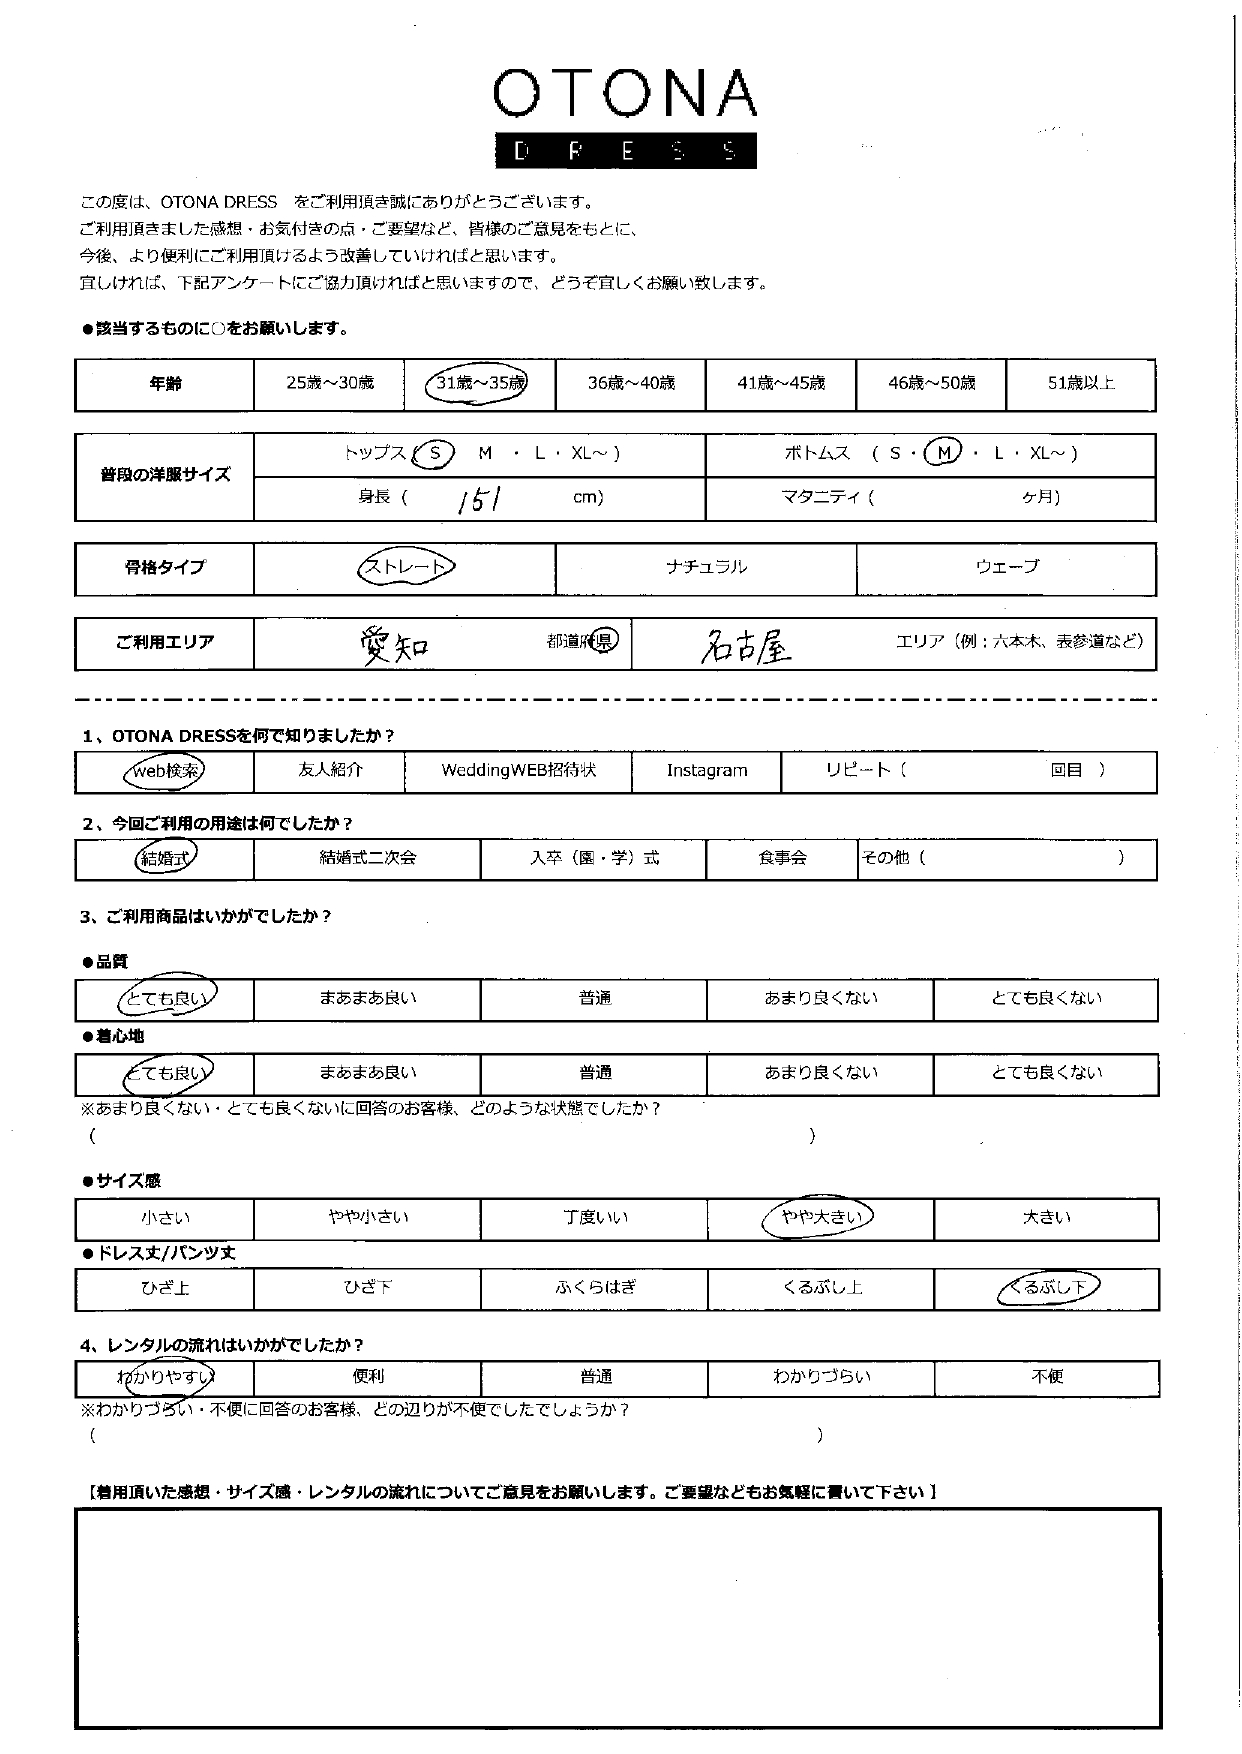 OTONA
DRESS
この度は、OTONA DRESS　をご利用頂き誠にありがとうございます。
ご利用頂きました感想・お気付きの点・ご要望など、皆様のご意見をもとに、
今後、より便利にご利用頂けるよう改善していければと思います。
宜しければ、下記アンケートにご協力頂ければと思いますので、どうぞ宜しくお願い致します。
●該当するものに○をお願いします。
年齢 25歳～30歳 31歳～35歳 36歳～40歳 41歳～45歳 46歳～50歳 51歳以上
普段の洋服サイズ
トップス ( S M ・ L ・ XL～ ) ボトムス ( S ・ M ・ L ・ XL～ )
身長 ( 151 cm) マタニティ ( ケ月)
骨格タイプ ストレート ナチュラル ウェーブ
ご利用エリア 愛知 都道府県 名古屋 エリア（例：六本木、表参道など）
1、OTONA DRESSを何で知りましたか？
Web検索 友人紹介 WeddingWEB招待状 Instagram リピート（ 回目 ）
2、今回ご利用の用途は何でしたか？
結婚式 結婚式二次会 入卒（園・学）式 食事会 その他（ ）
3、ご利用商品はいかがでしたか？
●品質
とても良い まあまあ良い 普通 あまり良くない とても良くない
●着心地
とても良い まあまあ良い 普通 あまり良くない とても良くない
※あまり良くない・とても良くないに回答のお客様、どのような状態でしたか？
( )
●サイズ感
小さい やや小さい 丁度いい やや大きい 大きい
●ドレス丈/パンツ丈
ひざ上 ひざ下 ふくらはぎ くるぶし上 くるぶし下
4、レンタルの流れはいかがでしたか？
わかりやすい 便利 普通 わかりづらい 不便
※わかりづらい・不便に回答のお客様、どの辺りが不便でしたでしょうか？
( )
【着用頂いた感想・サイズ感・レンタルの流れについてご意見をお願いします。ご要望などもお気軽に書いて下さい】